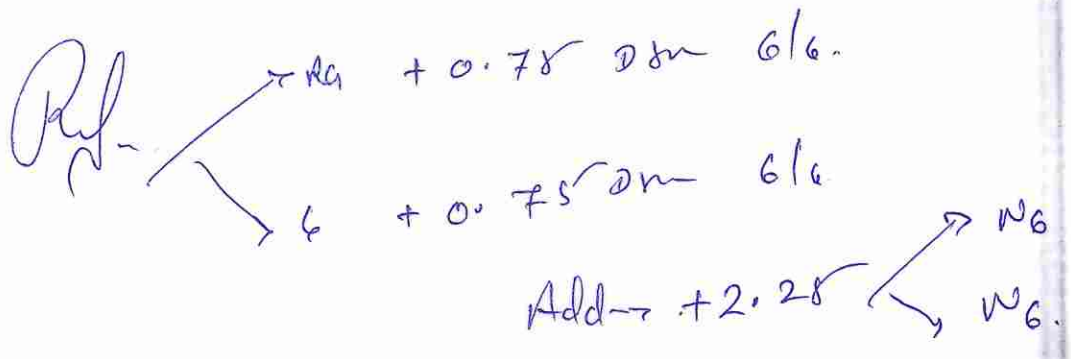 Ref → RE + 0.75 Dsn 6/6.
→ LE + 0.75 Dsn 6/6
Add → +2.25 → N6
→ N6.